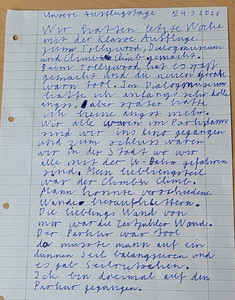 Unsere Ausflugstage 24.3.2025
Wir hatten letzte Woche
mit der Klasse Ausflüge
zum Tollywood, Dialogmuseum
und Climb Climb gemacht.
Beim Tollywood hat es spaß
gemacht und die neuen geräte
waren tool. Im Dialogmuseum
hatte ich am anfang sehr dolle
angst. aber später hatte
ich keine angst mehr.
Wir alle waren im Parkdann
sind wir ins Eino gegangen
und zum schluss waren
wir in der Stadt wo wir
alle mit der U-Bahn gefahren
sind. Mein lieblingsteil
war der Climb Climb.
Mann konnte verschiedene
Wände heraufklettern.
Die lieblings Wand von
mir war die Zeitzähler Wand.
Der Parkur war tool
da musste mann auf ein
dünnen Seil balangsieren und
es gab
Ich bin dreimal auf den
Parkur gegangen.